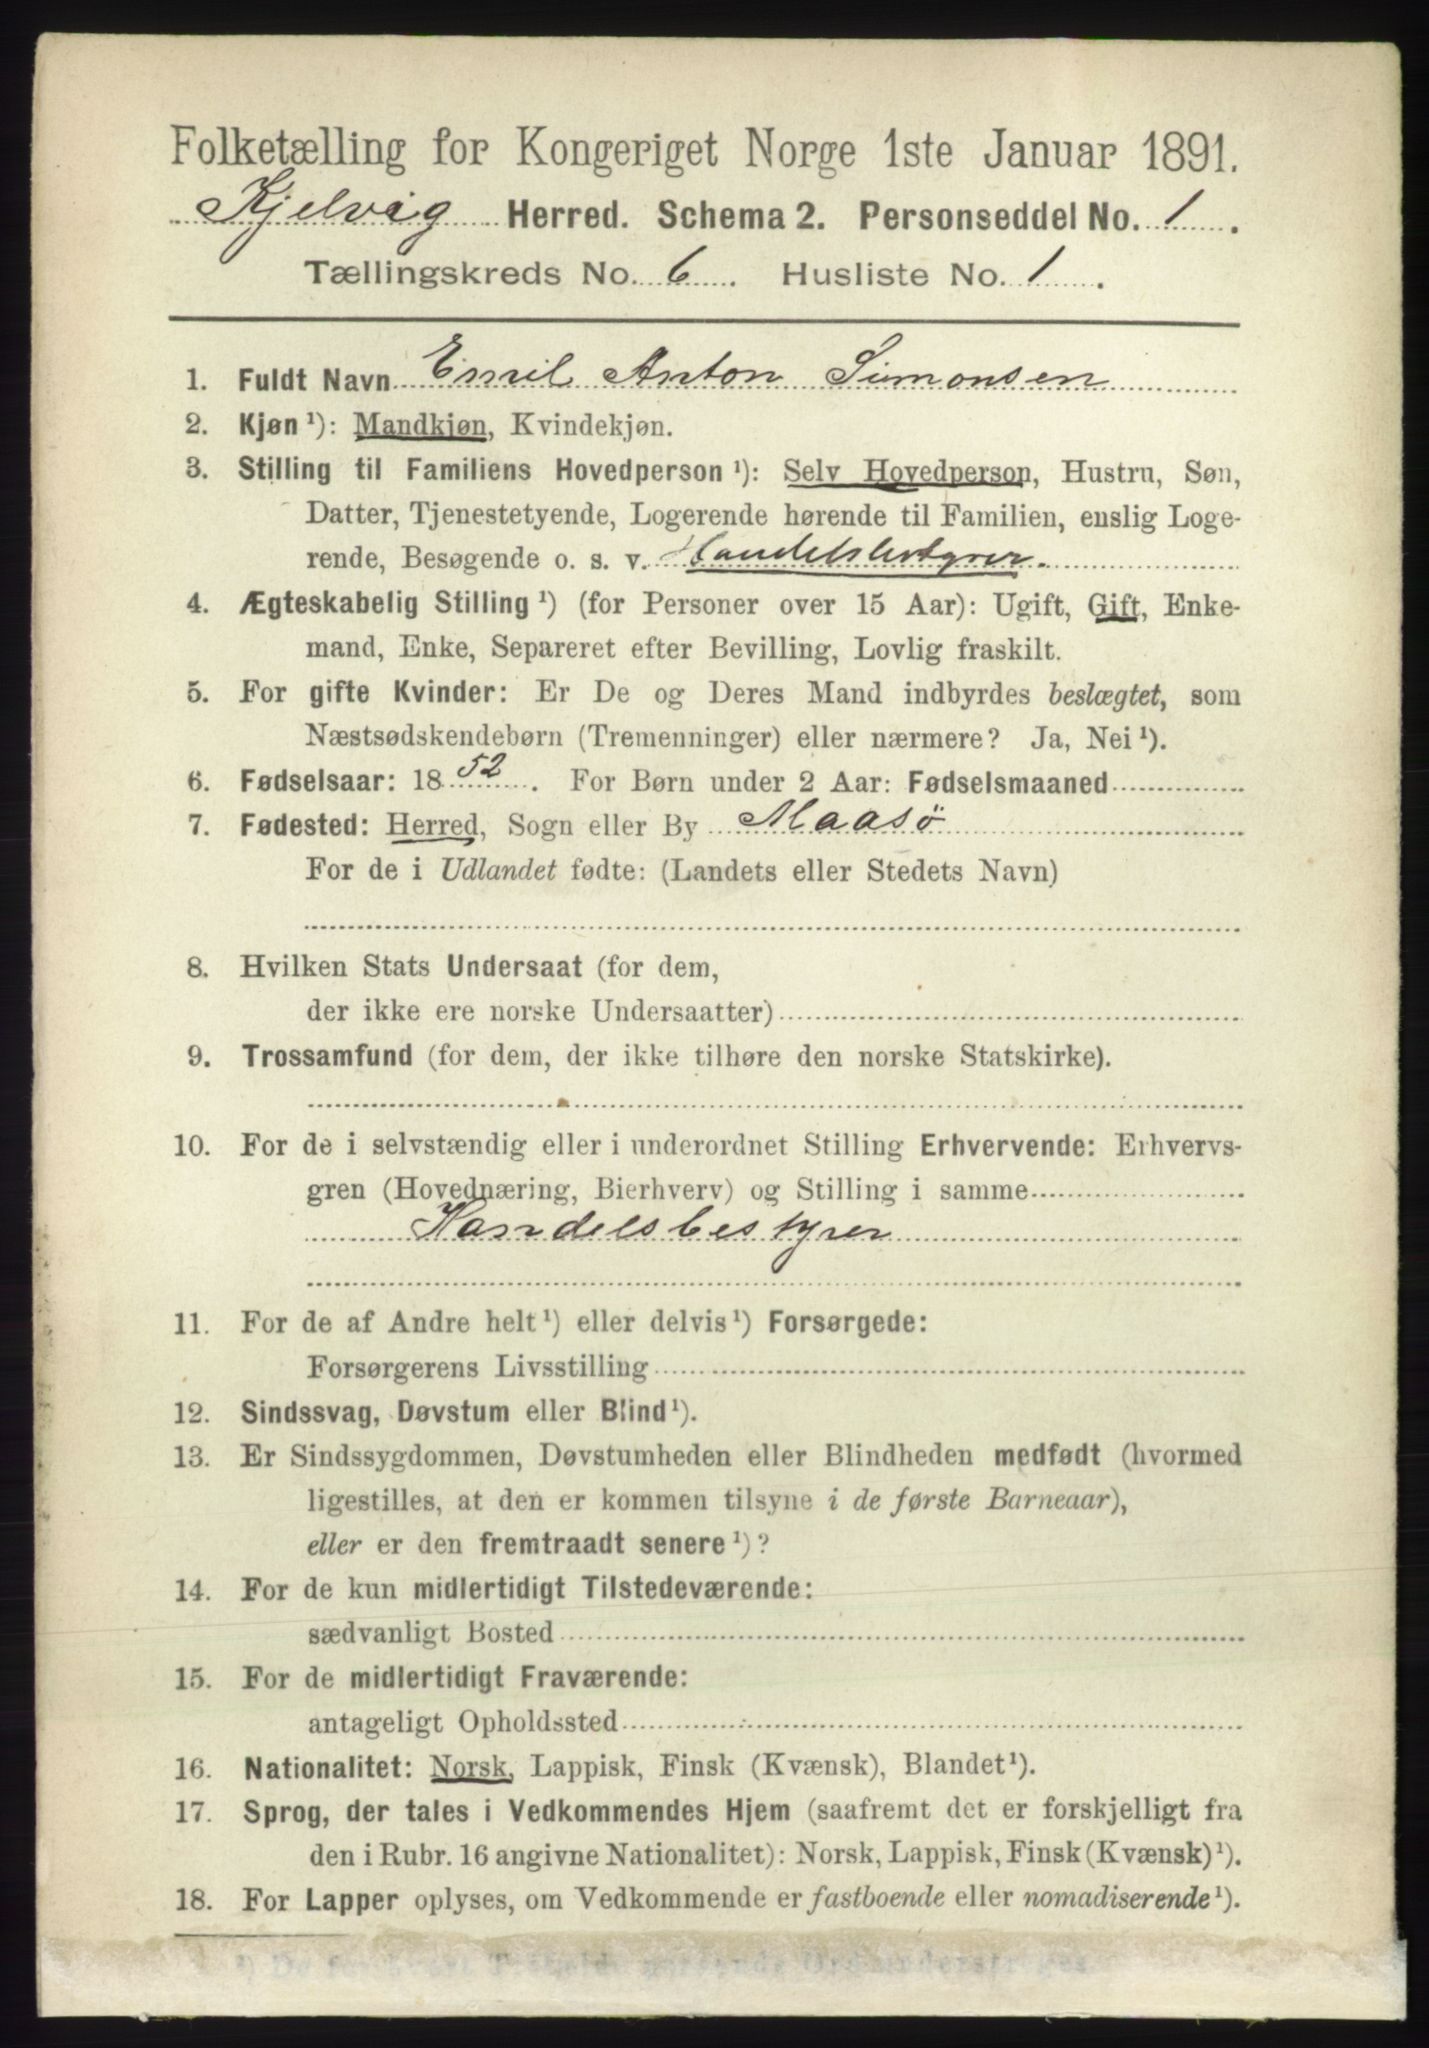 Folketælling for Kongeriget Norge 1ste Januar 1891.
Kjelvig Herred. Schema 2. Personseddel No. 1.
Tællingskreds No. 6. Husliste No. 1.
1. Fuldt Navn Emil Anton Simonsen
2. Kjøn ¹): Mandkjøn, Kvindekjøn.
3. Stilling til Familiens Hovedperson ¹): Selv Hovedperson, Hustru, Søn,
Datter, Tjenestetyende, Logerende hørende til Familien, enslig Loge-
rende, Besøgende o. s. v. Handelsbestyrer.
4. Ægteskabelig Stilling ¹) (for Personer over 15 Aar): Ugift, Gift, Enke-
mand, Enke, Separeret efter Bevilling, Lovlig fraskilt.
5. For gifte Kvinder: Er De og Deres Mand indbyrdes beslægtet, som
Næstsødskendebørn (Tremenninger) eller nærmere? Ja, Nei ¹).
6. Fødselsaar: 1852. For Børn under 2 Aar: Fødselsmaaned
7. Fødested: Herred, Sogn eller By Maasö
For de i Udlandet fødte: (Landets eller Stedets Navn)
8. Hvilken Stats Undersaat (for dem,
der ikke ere norske Undersaatter)
9. Trossamfund (for dem, der ikke tilhøre den norske Statskirke).
10. For de i selvstændig eller i underordnet Stilling Erhvervende: Erhvervs-
gren (Hovednæring, Bierhverv) og Stilling i samme
Handelsbestyrer
11. For de af Andre helt ¹) eller delvis ¹) Forsørgede:
Forsørgerens Livsstilling
12. Sindssvag, Døvstum eller Blind ¹).
13. Er Sindssygdommen, Døvstumheden eller Blindheden medfødt (hvormed
ligestilles, at den er kommen tilsyne i de første Barneaar),
eller er den fremtraadt senere ¹)?
14. For de kun midlertidigt Tilstedeværende:
sædvanligt Bosted
15. For de midlertidigt Fraværende:
antageligt Opholdssted
16. Nationalitet: Norsk, Lappisk, Finsk (Kvænsk), Blandet ¹).
17. Sprog, der tales i Vedkommendes Hjem (saafremt det er forskjelligt fra
den i Rubr. 16 angivne Nationalitet): Norsk, Lappisk, Finsk (Kvænsk) ¹).
18. For Lapper oplyses, om Vedkommende er fastboende eller nomadiserende ¹).
¹) De for hvert Tilfælde passende Ord understreges.